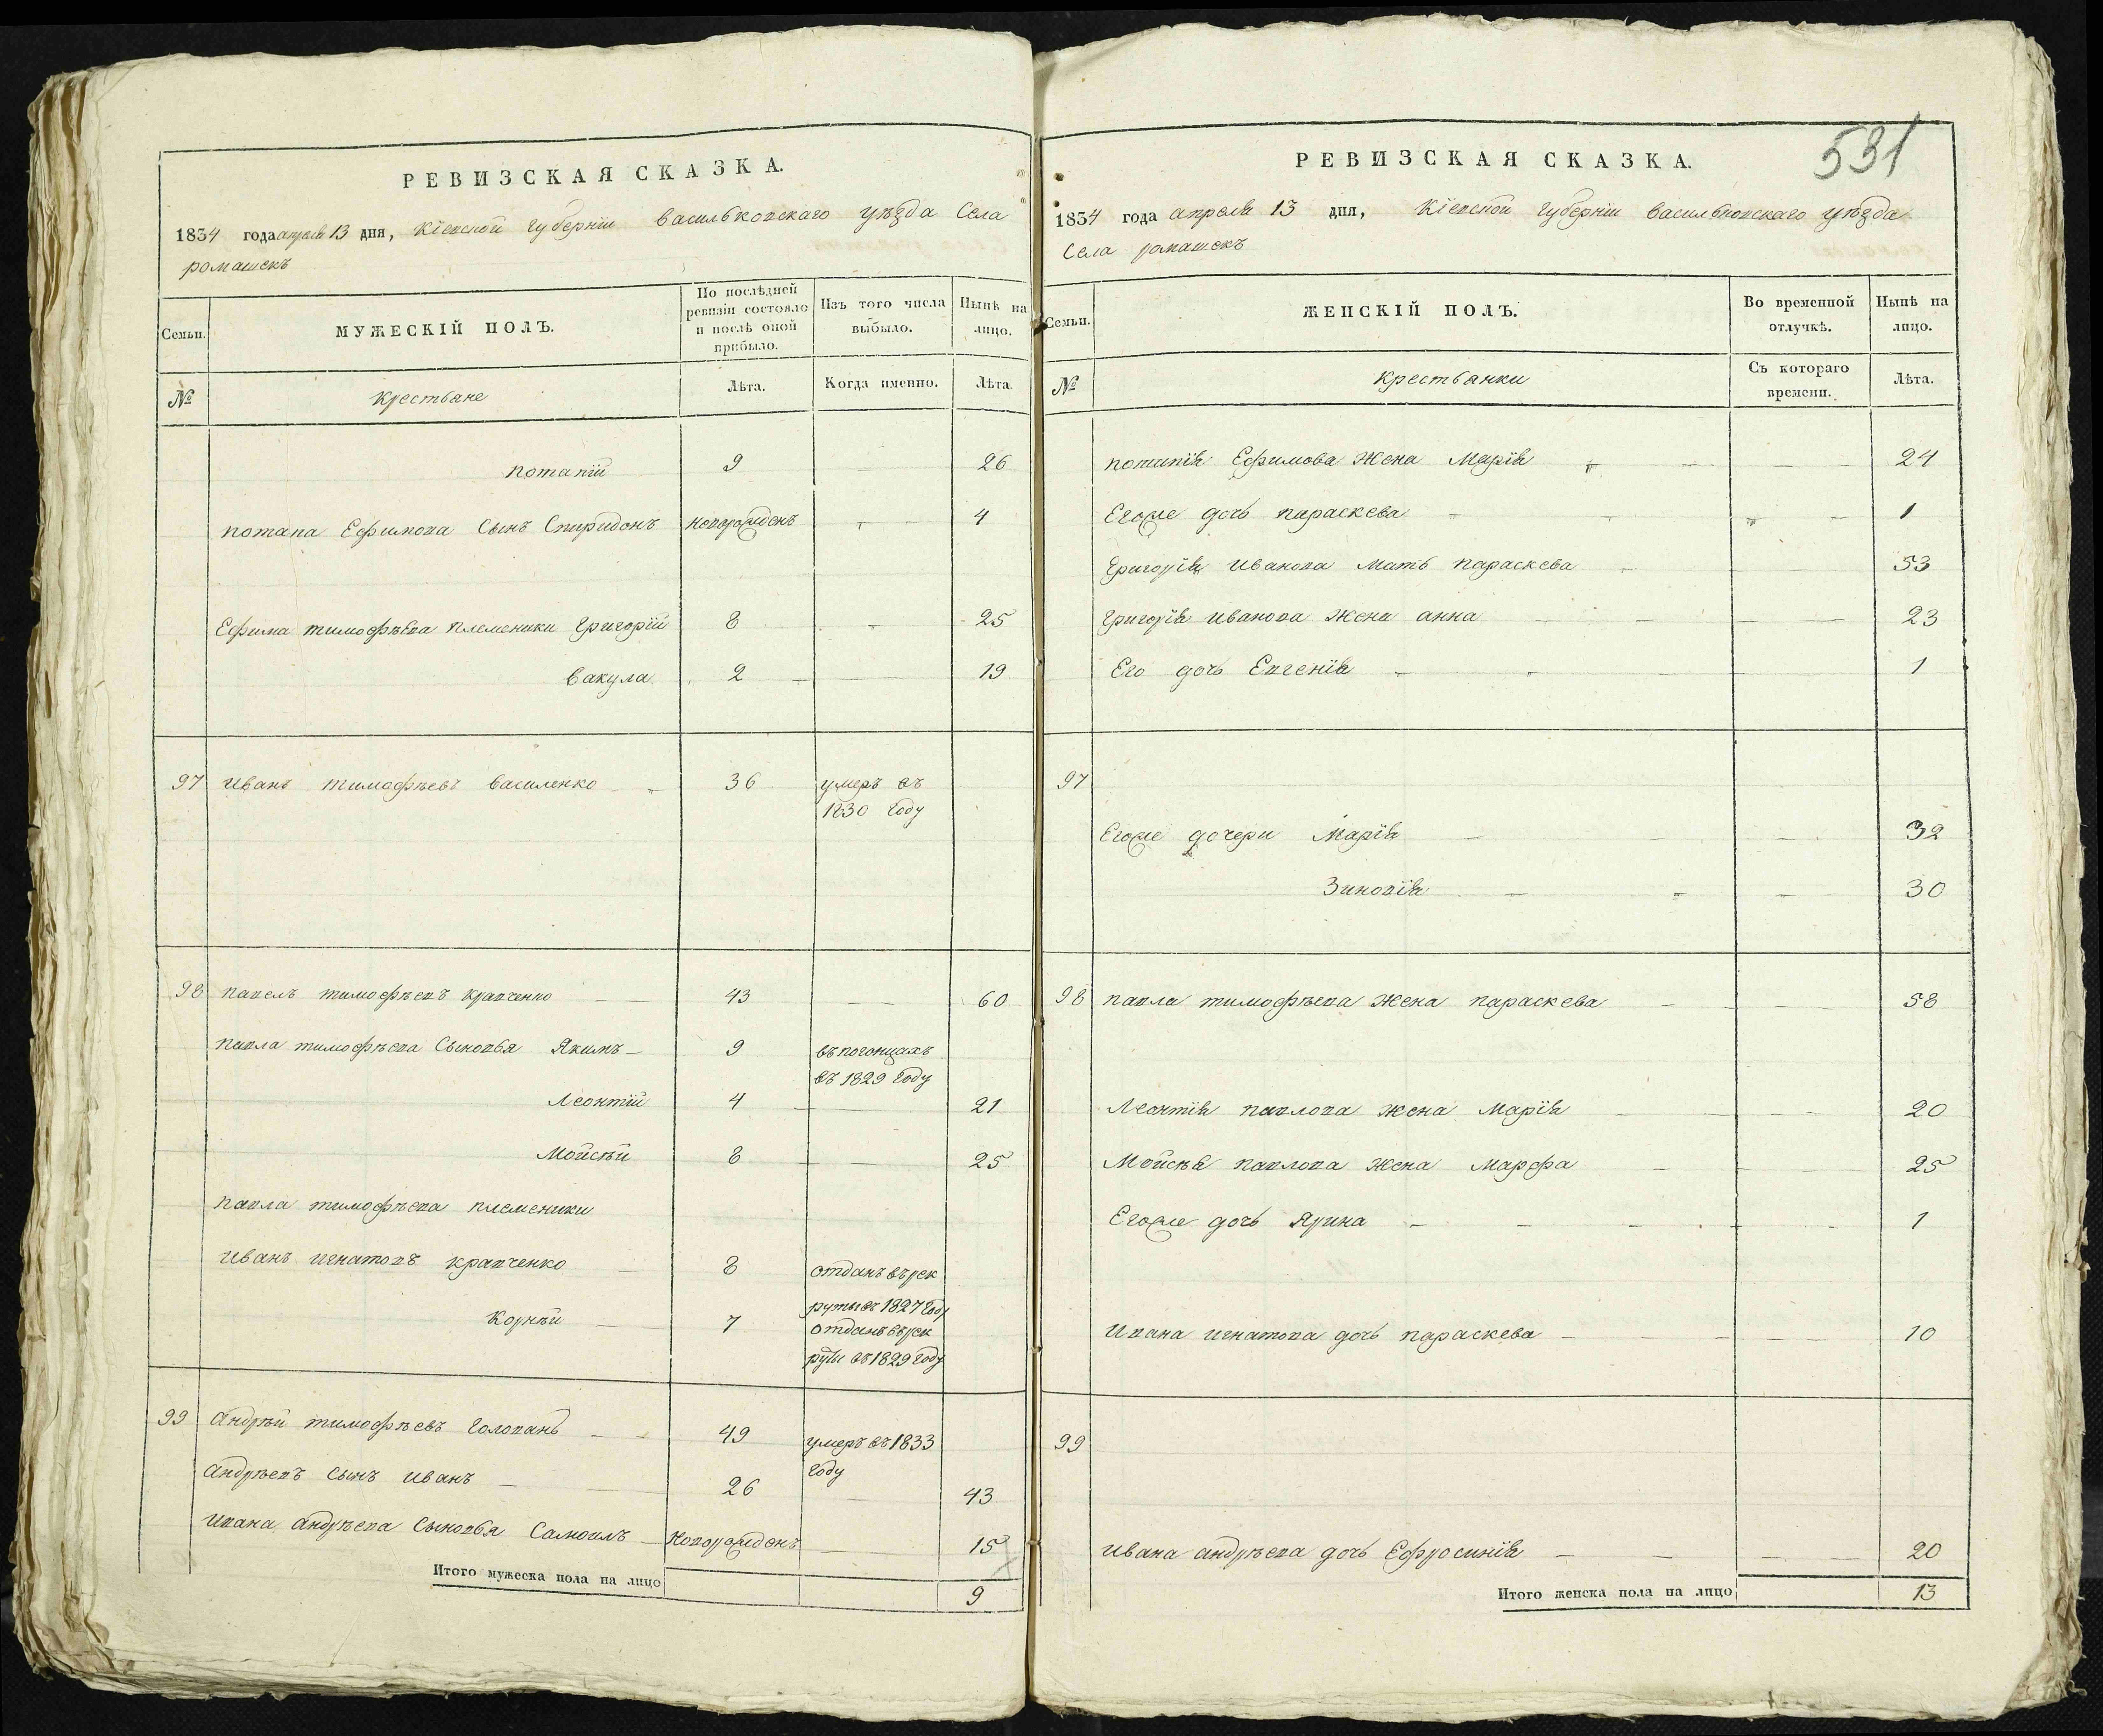 РЕВИЗСКАЯ СКАЗКА.
1834 года апреля 13 дня, Кіевской Губерніи Васильковскаго уѣзда Села
ромашекъ
Семьи.
МУЖЕСКІЙ ПОЛЪ.
По послѣдней
ревизіи состояло
и послѣ оной
прибыло.
Изъ того числа
выбыло.
Нынѣ на
лицо.
№
Крестьяне
Лѣта.
Когда именно.
Лѣта.
потапій 9 — 26
потапа Ефимова Сынъ Спиридонъ новорожденъ — 4
Ефима тимофѣева племеники Григорій 8 — 25
Вакула 2 — 19
97 Иванъ тимофѣевъ Василенко 36 умеръ въ
1830 Году
98 павелъ тимофѣевъ кравченко 43 — 60
павла тимофѣева Сыновья Якимъ 9 въ погонцахъ
въ 1829 Году
Леонтій 4 — 21
Мойсѣй 8 — 25
павла тимофѣева племеники
Иванъ игнатовъ кравченко 8 отданъ въ рек
руты въ 1827 Году
Корнѣй 7 отданъ въ рек
руты въ 1829 Году
99 Андрѣй тимофѣевъ Головань 49 умеръ въ 1833
Году
Андрѣевъ Сынъ Иванъ 26 — 43
Ивана Андрѣева Сыновья Самоилъ Новорожденъ — 15
Итого мужеска пола на лицо 9
531
РЕВИЗСКАЯ СКАЗКА.
1834 года апреля 13 дня, Кіевской Губерніи Васильковскаго уѣзда
Села ромашекъ
Семьи.
ЖЕНСКІЙ ПОЛЪ.
Во временной
отлучкѣ.
Нынѣ на
лицо.
№
Крестьянки
Съ котораго
времени.
Лѣта.
потапія Ефимова Жена Марія — 24
Егоже дочь параскева — 1
Григорія Иванова мать параскева — 53
Григорія Иванова Жена анна — 23
Его дочь Евгенія — 1
97
Егоже дочери Марія — 32
Зиновія — 30
98 павла тимофѣева Жена параскева — 58
Леонтія павлова жена Марія — 20
Мойсѣя павлова жена Марфа — 25
Егоже дочь Ярина — 1
Ивана игнатова дочь параскева — 10
99
Ивана андрѣева дочь Ефросинія — 20
Итого женска пола на лицо 13